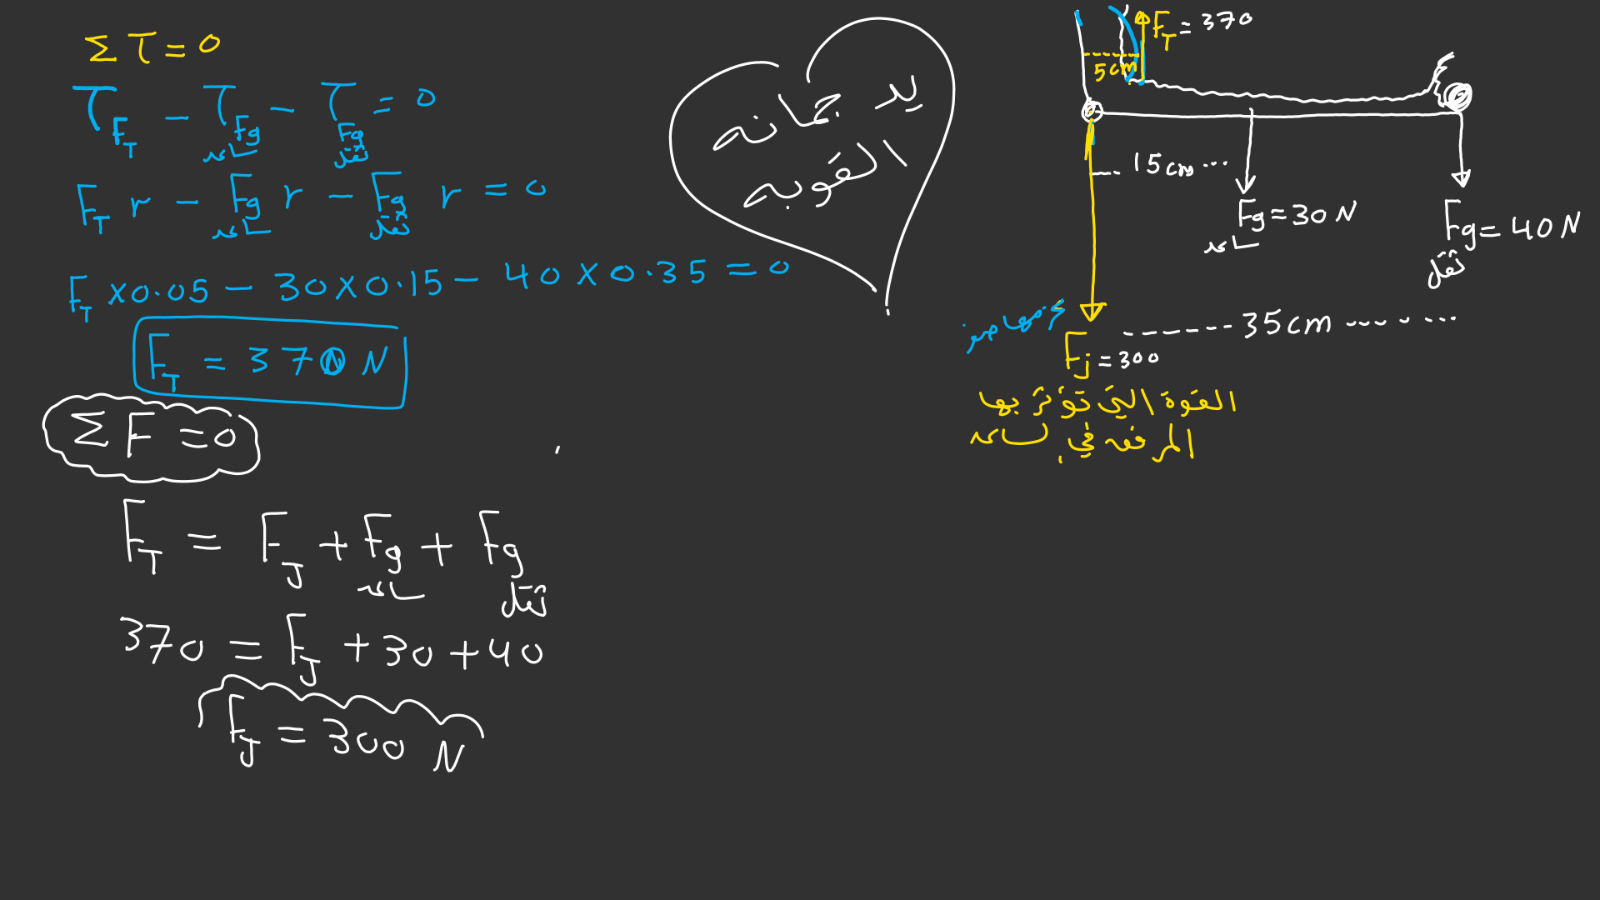 Στ = 0
τ_FT − τ_Fg ساعد − τ_Fg ثقل = 0
F_T r − Fg ساعد r − Fg ثقل r = 0
F_T × 0.05 − 30 × 0.15 − 40 × 0.35 = 0
F_T = 370 N
ΣF = 0
F_T = F_J + Fg ساعد + Fg ثقل
370 = F_J + 30 + 40
F_J = 300 N
يد جمانه
القويه
F_T = 370
5cm
15cm
Fg = 30 N
ساعد
Fg = 40 N
ثقل
35cm
عزمها صفر
F_j = 300
القوة التي تؤثر بها
المرفق في الساعد